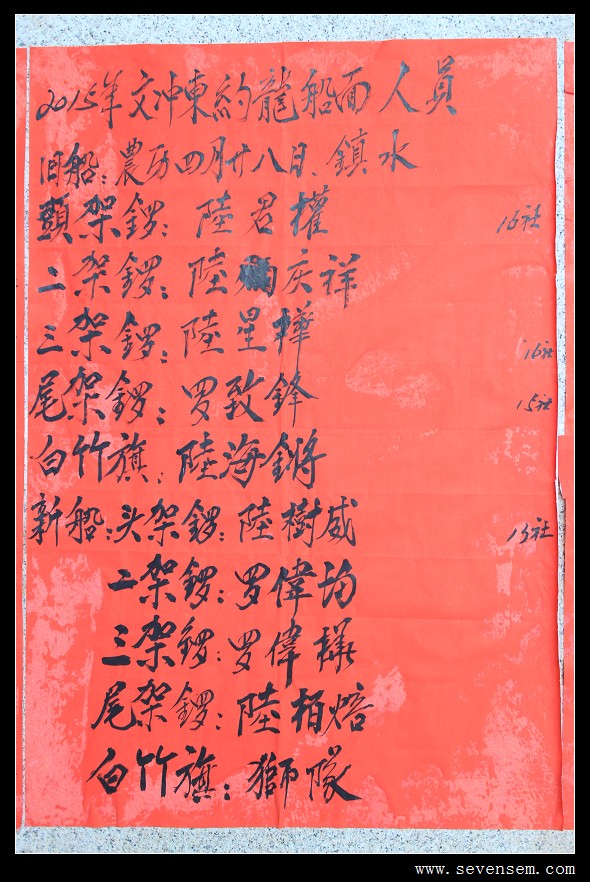 2015年文冲東約龍船面人員
旧船：農历四月廿八日、鎮水
頭架鑼：陸君權 16社
二架鑼：陸庆祥
三架鑼：陸星樺 16社
尾架鑼：罗致鋒 15社
白竹旗：陸海鏘
新船：头架鑼：陸樹威 13社
二架鑼：罗偉均
三架鑼：罗偉
尾架鑼：陸栢焙
白竹旗：獅隊
www.sevensem.com